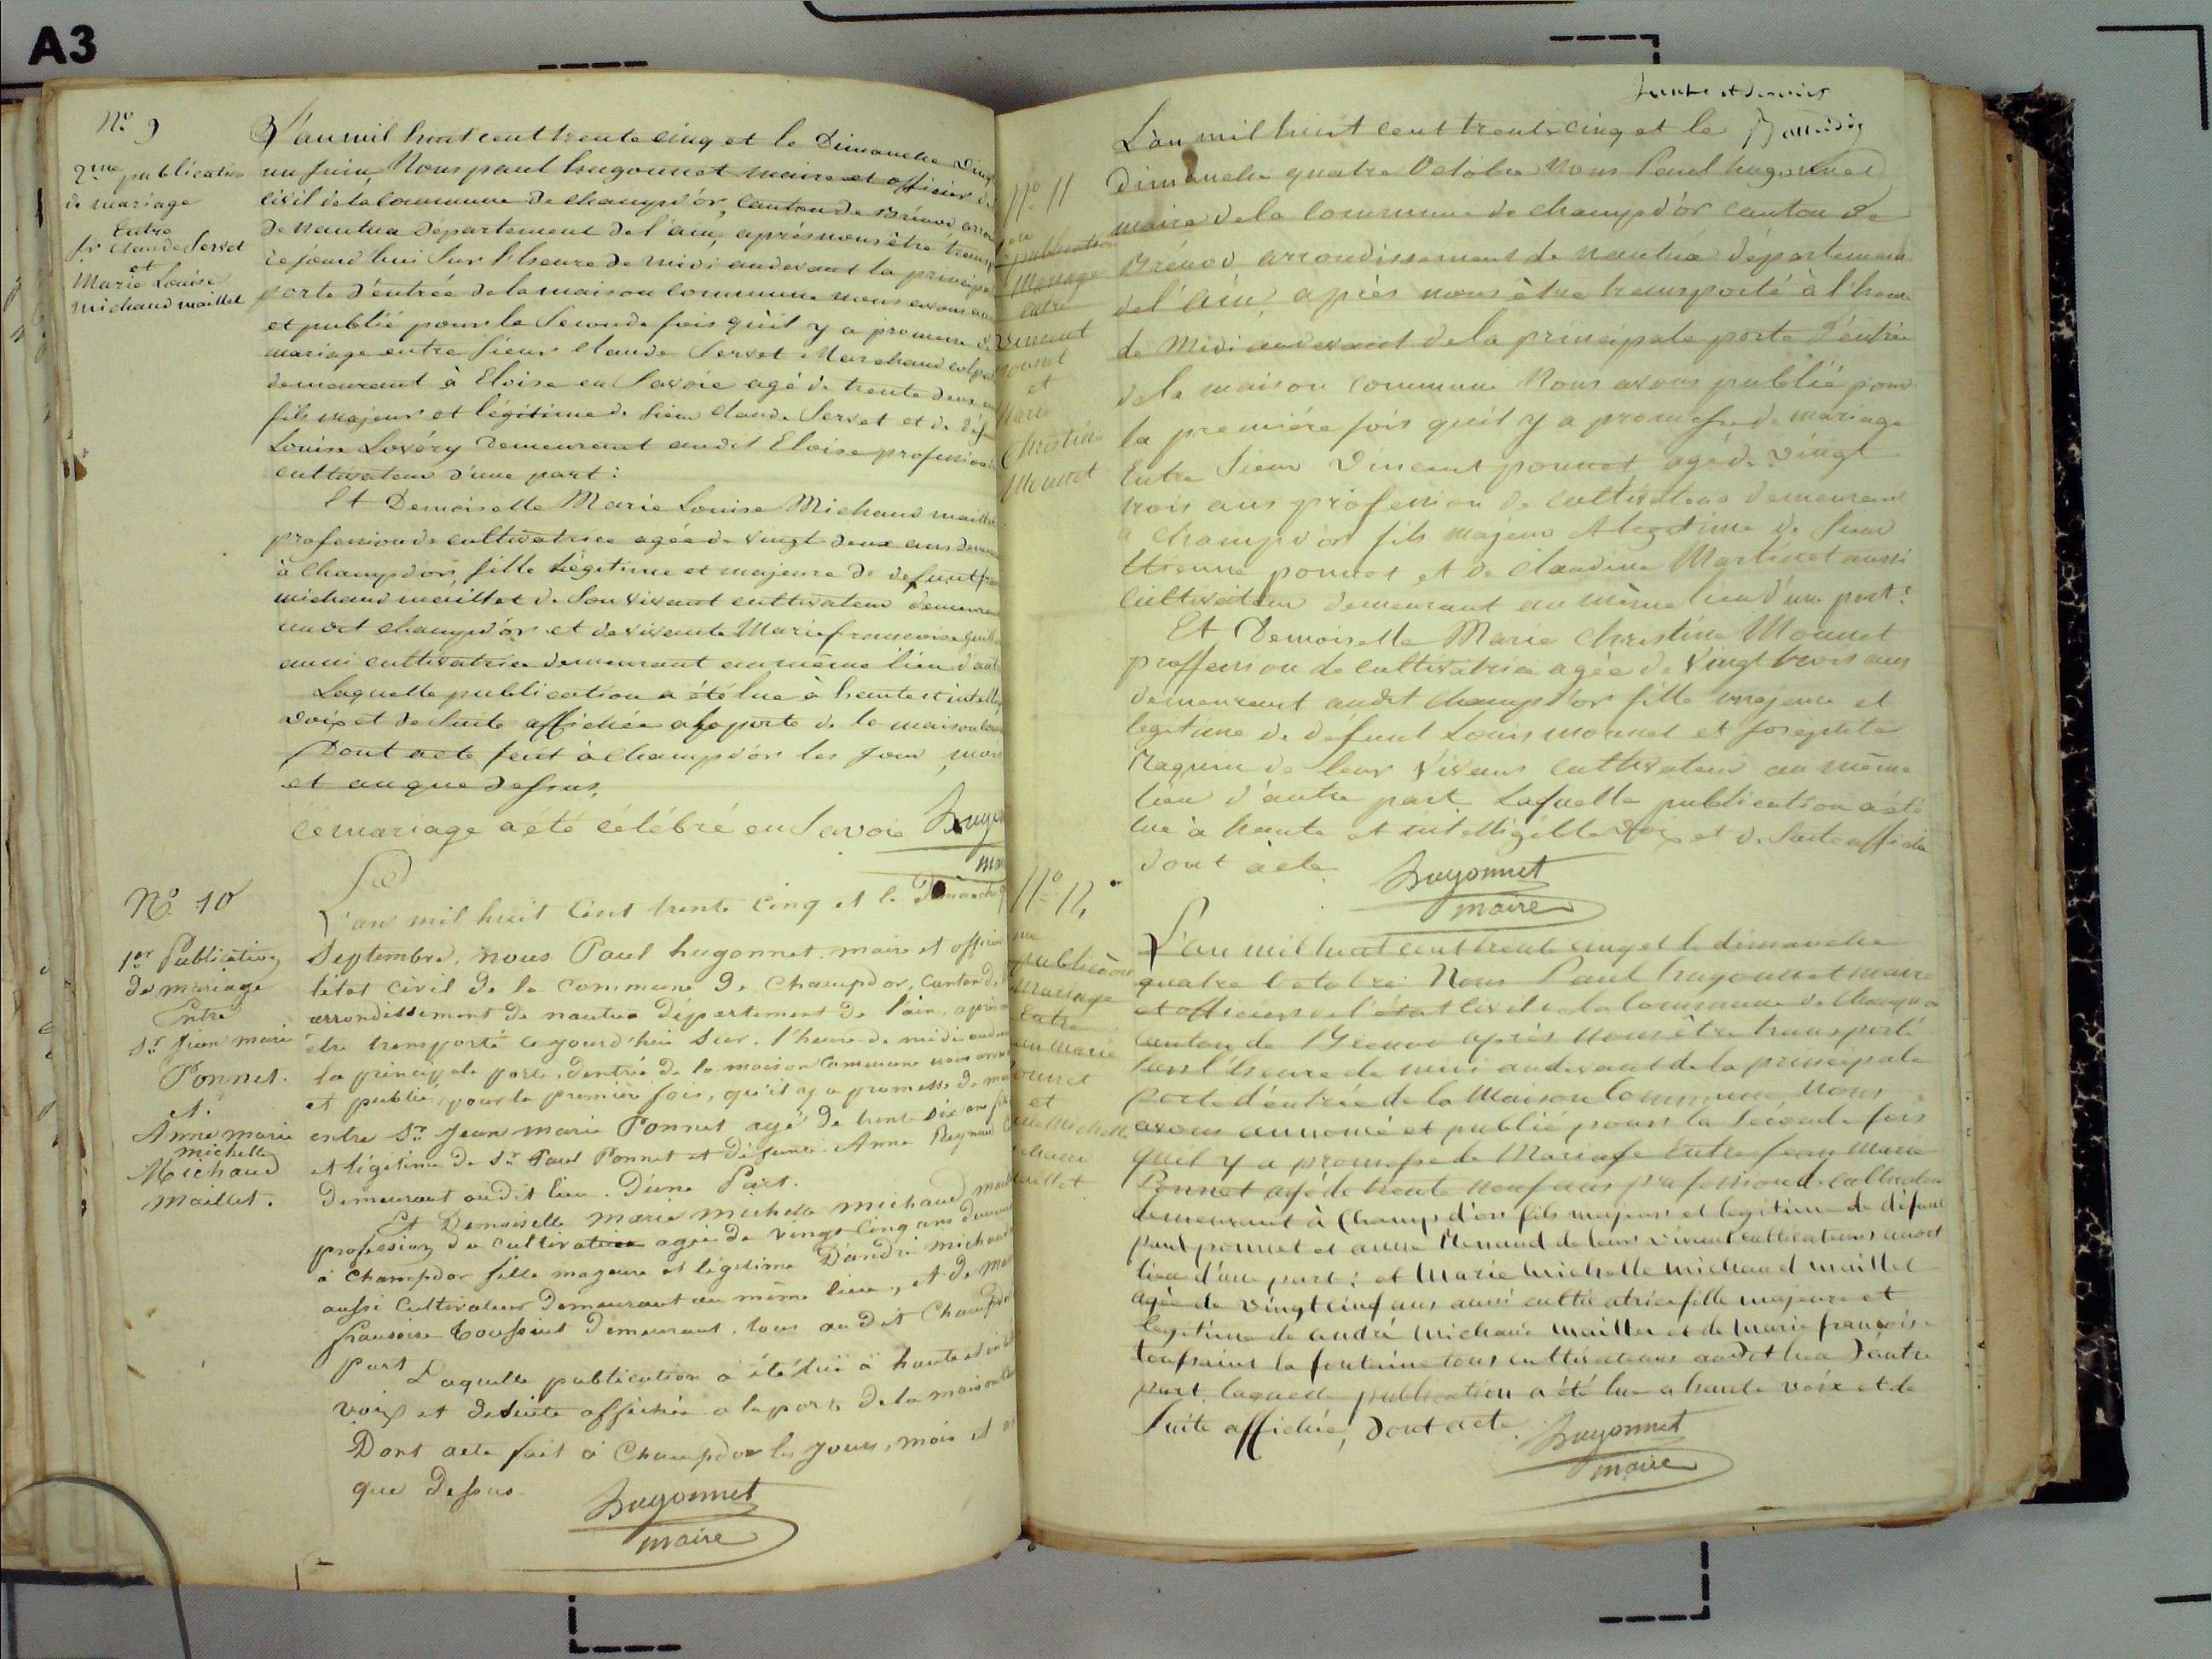 A3
N° 9
2me publication
de mariage
Entre
Sr Claude Servet
et
Marie Louise
michaud maillet
L'an mil huit cent trente cinq et le Dimanche vingt
un juin, Nous paul hugonnet maire et officier de
civil de la commune de champd'or, canton de Brénod arron
de nantua département de l'ain, après nous être transp
ce jourd'hui sur l'heure de midi audevant la principa
porte d'entrée de la maison commune nous avons an
et publié pour la seconde fois qu'il y a promesse de
mariage entre sieur Claude Servet Marchand colpor
demeurant à Eloise en Savoie agé de trente deux an
fils majeur et légitime de sieur Claude Servet et de défun
Louise Lovéry demeurant audit Eloise profession
cultivateur d'une part :
Et Demoiselle Marie Louise Michaud maillet
profession de cultivatrice agée de vingt deux ans demeu
à Champd'or, fille légitime et majeure de defunt
michaud maillet de son vivant cultivateur demeuran
audit champd'or et de vivante Marie francoise
aussi cultivatrice demeurant au même lieu d'aut
Laquelle publication a été lue à haute et intelli
voix et de suite affichée a la porte de la maison com
Dont acte fait à Champd'or les jour, mois
et an que dessus.
ce mariage a été célébré en Savoie Hugon
ma
N° 10
1er Publication
de mariage
Entre
Sr Jean marie
Ponnet.
et.
Anne marie
michelle
Michaud
maillet.
L'an mil huit cent trente cinq et le Dimanche
Septembre, nous Paul hugonnet, maire et officier
l'état civil de la commune de Champdor, canton de
arrondissement de nantua département de l'ain, après
être transporté ce jourd'hui sur l'heure de midi audev
la principale porte, dentré de la maison commune nous avon
et publié, pour la premier fois, qu'il y a promesse de ma
entre Sr Jean marie Ponnet agé de trente six ans fils
et légitime de Sr Paul Ponnet et défunte Anne Reynaud
Demeurant audit lieu. D'une Part.
Et Demoiselle marie michelle michaud mail
profession de cultivatrice agée de vingt cinq ans demeu
à Champdor fille majeure et légitime D'andré michaud
aussi cultivateur demeurant au même lieu, et de mar
fransoise Toussaint demeurant, tous audit Champdor
part Laquelle publication a été lue à haute et intel
voix et de suite affichée a la porte de la maison
Dont acte fait à Champdor les jour, mois et an
que dessus.
Hugonnet
maire
trente et dernier
N° 11
publication
Mariage
entre
Vincent
ponnet
et
Marie
Christine
Monnet
L'an mil huit cent trente cinq et le
Dimanche quatre Octobre Nous Paul hugonnet
maire de la commune de champd'or canton de
Brénod arrondissement de nantua département
de l'ain, après nous être transporté à l'heure
de Midi audevant de la principale porte d'entrée
de la maison commune Nous avons publié pour
la première fois qu'il y a promesse de mariage
Entre Sieur Vincent ponnet, agé de vingt
trois ans profession de cultivateur demeurant
a Champd'or fils majeur et legitime de Sieur
Etienne ponnet et de Claudine Martinet aussi
cultivateur demeurant au même lieu d'une part :
Et Demoiselle Marie Christine Monnet
proffession de cultivatrice agée de vingt trois ans
demeurant audit Champd'or fille majeure et
legitime de défunt Louis monnet et
de leur vivans cultivateur au même
lieu d'autre part. Laquelle publication a été
lue à haute et intelligible voix et de suite affichée
dont acte.
Hugonnet
maire
N° 12
me
publication
Mariage
Entre
Jean Marie
Ponnet
et
Marie Michelle
michaud
maillet
L'an mil huit cent trente cinq et le dimanche
quatre Octobre Nous Paul hugonnet maire
et officier de l'état civil de la commune de Champd'or
canton de Brenod après nous être transporté
sur l'heure de midi audevant de la principale
porte d'entrée de la Maison Commune, Nous
avons annoncé et publié pour la seconde fois
qu'il y a promesse de Mariage Entre Jean Marie
Ponnet agé de trente neuf ans profession de cultivateur
demeurant à Champ d'or fils majeur et legitime de défunt
paul ponnet et anne Renaud de leurs vivant cultivateurs audit
lieu d'une part : et Marie Michelle michaud maillet
agée de vingt cinq ans aussi cultivatrice fille majeure et
legitime de andré Michaud Maillet et de Marie françoise
toussaint la fontaine tous cultivateurs audit lieu d'autre
part laquelle publication a été lue a haute voix et de
Suite affichée, dont acte.
Hugonnet
maire